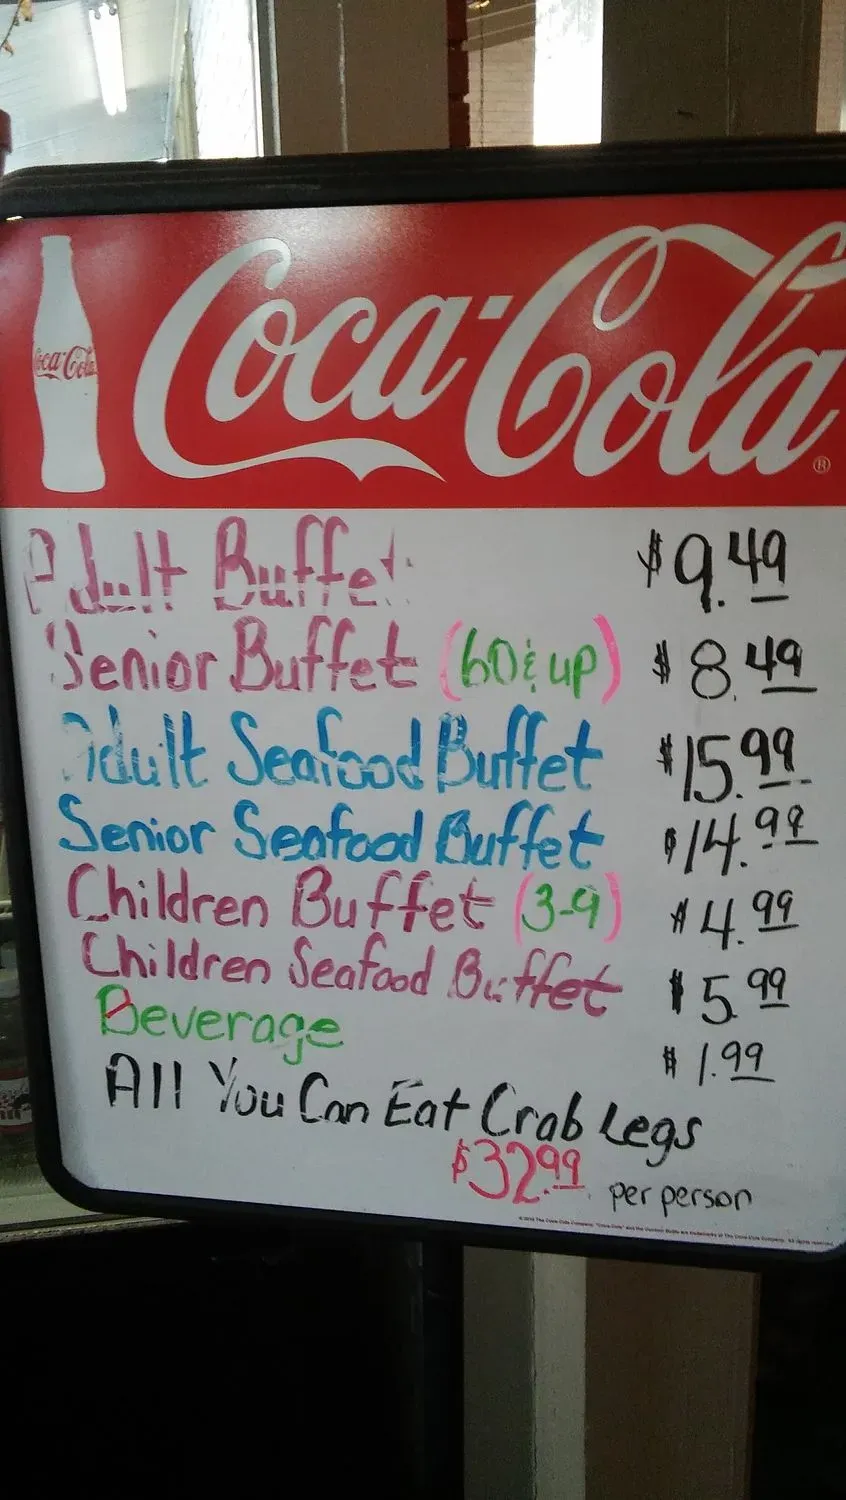 Coca-Cola
Coca-Cola ®
Adult Buffet $9.49
Senior Buffet (60 & up) $8.49
Adult Seafood Buffet $15.99
Senior Seafood Buffet $14.99
Children Buffet (3-9) $4.99
Children Seafood Buffet $5.99
Beverage $1.99
All You Can Eat Crab Legs
$32.99 per person